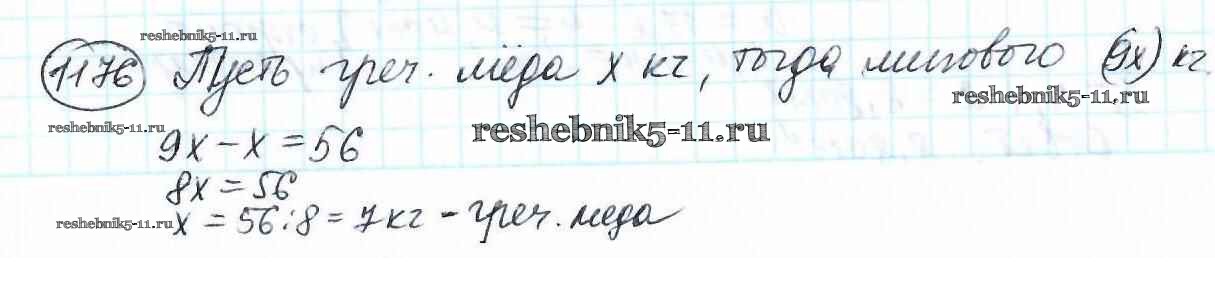 reshebnik5-11.ru
1176 Пусть греч. мёда x кг, тогда липового (9x) кг
reshebnik5-11.ru
reshebnik5-11.ru
reshebnik5-11.ru
9x - x = 56
8x = 56
reshebnik5-11.ru
x = 56 : 8 = 7 кг - греч. меда